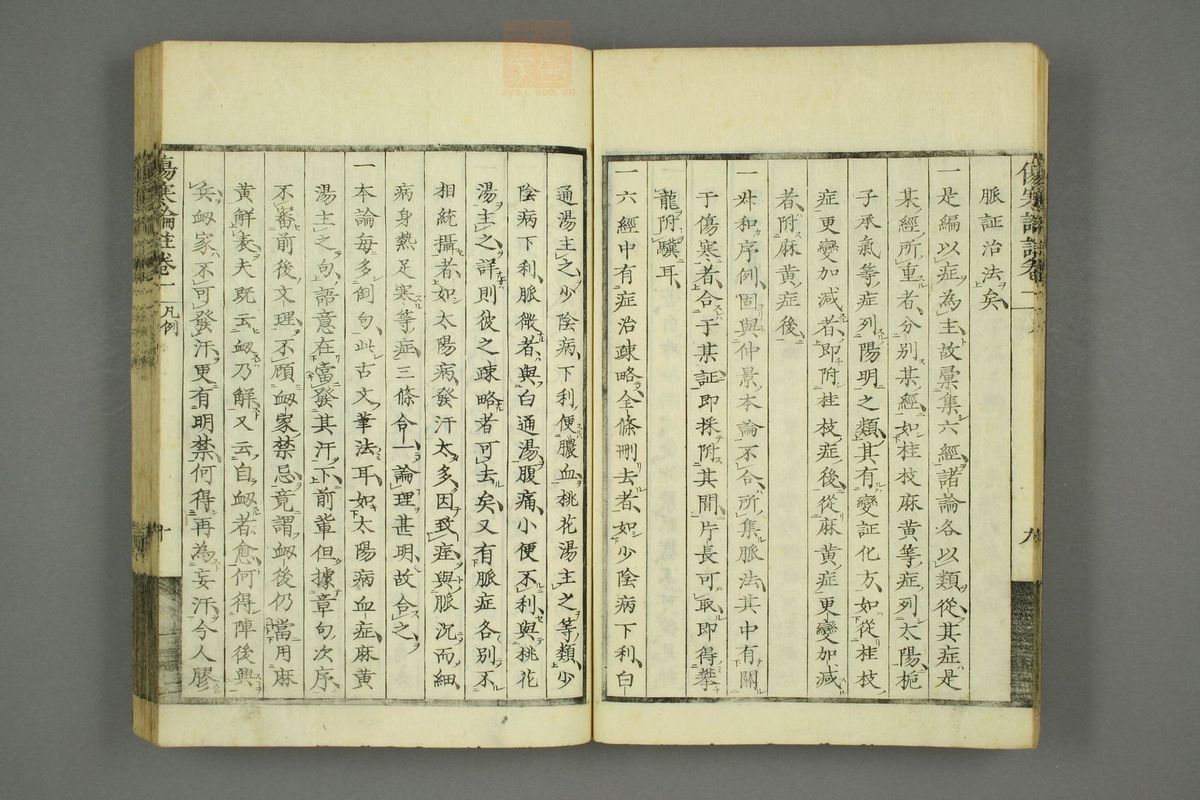 脈証治法矣
一是編以症為主故彙集六經諸論各以類從其症是
某經所重者分別某經如桂枝麻黃等症列太陽梔
子承氣等症列陽明之類其有變証化方如從桂枝
症更變加減者即附桂枝症後從麻黃症更變加減
者附麻黃症後
一叔和序例固與仲景本論不合所集脈法其中有關
于傷寒者合于某証即採附其間片長可取即得攀
龍附驥耳
一六經中有症治疎略全條刪去者如少陰病下利白
通湯主之少陰病下利便膿血桃花湯主之等類少
陰病下利脈微者與白通湯腹痛小便不利與桃花
湯主之詳則彼之疎略者可去矣又有脈症各別不
相統攝者如太陽病發汗太多因致痓與脈沉而細
病身熱足寒等症三條合一論理甚明故合之
一本論每多倒句此古文筆法耳如太陽病血症麻黃
湯主之句語意在當發其汗下前輩但據章句次序
不審前後文理不顧衂家禁忌竟謂衂後仍當用麻
黃解表夫既云衂乃解又云自衂者愈何得陣後興
兵衂家不可發汗更有明禁何得再為妄汗今人膠
傷寒論註卷一
凡例
九
十